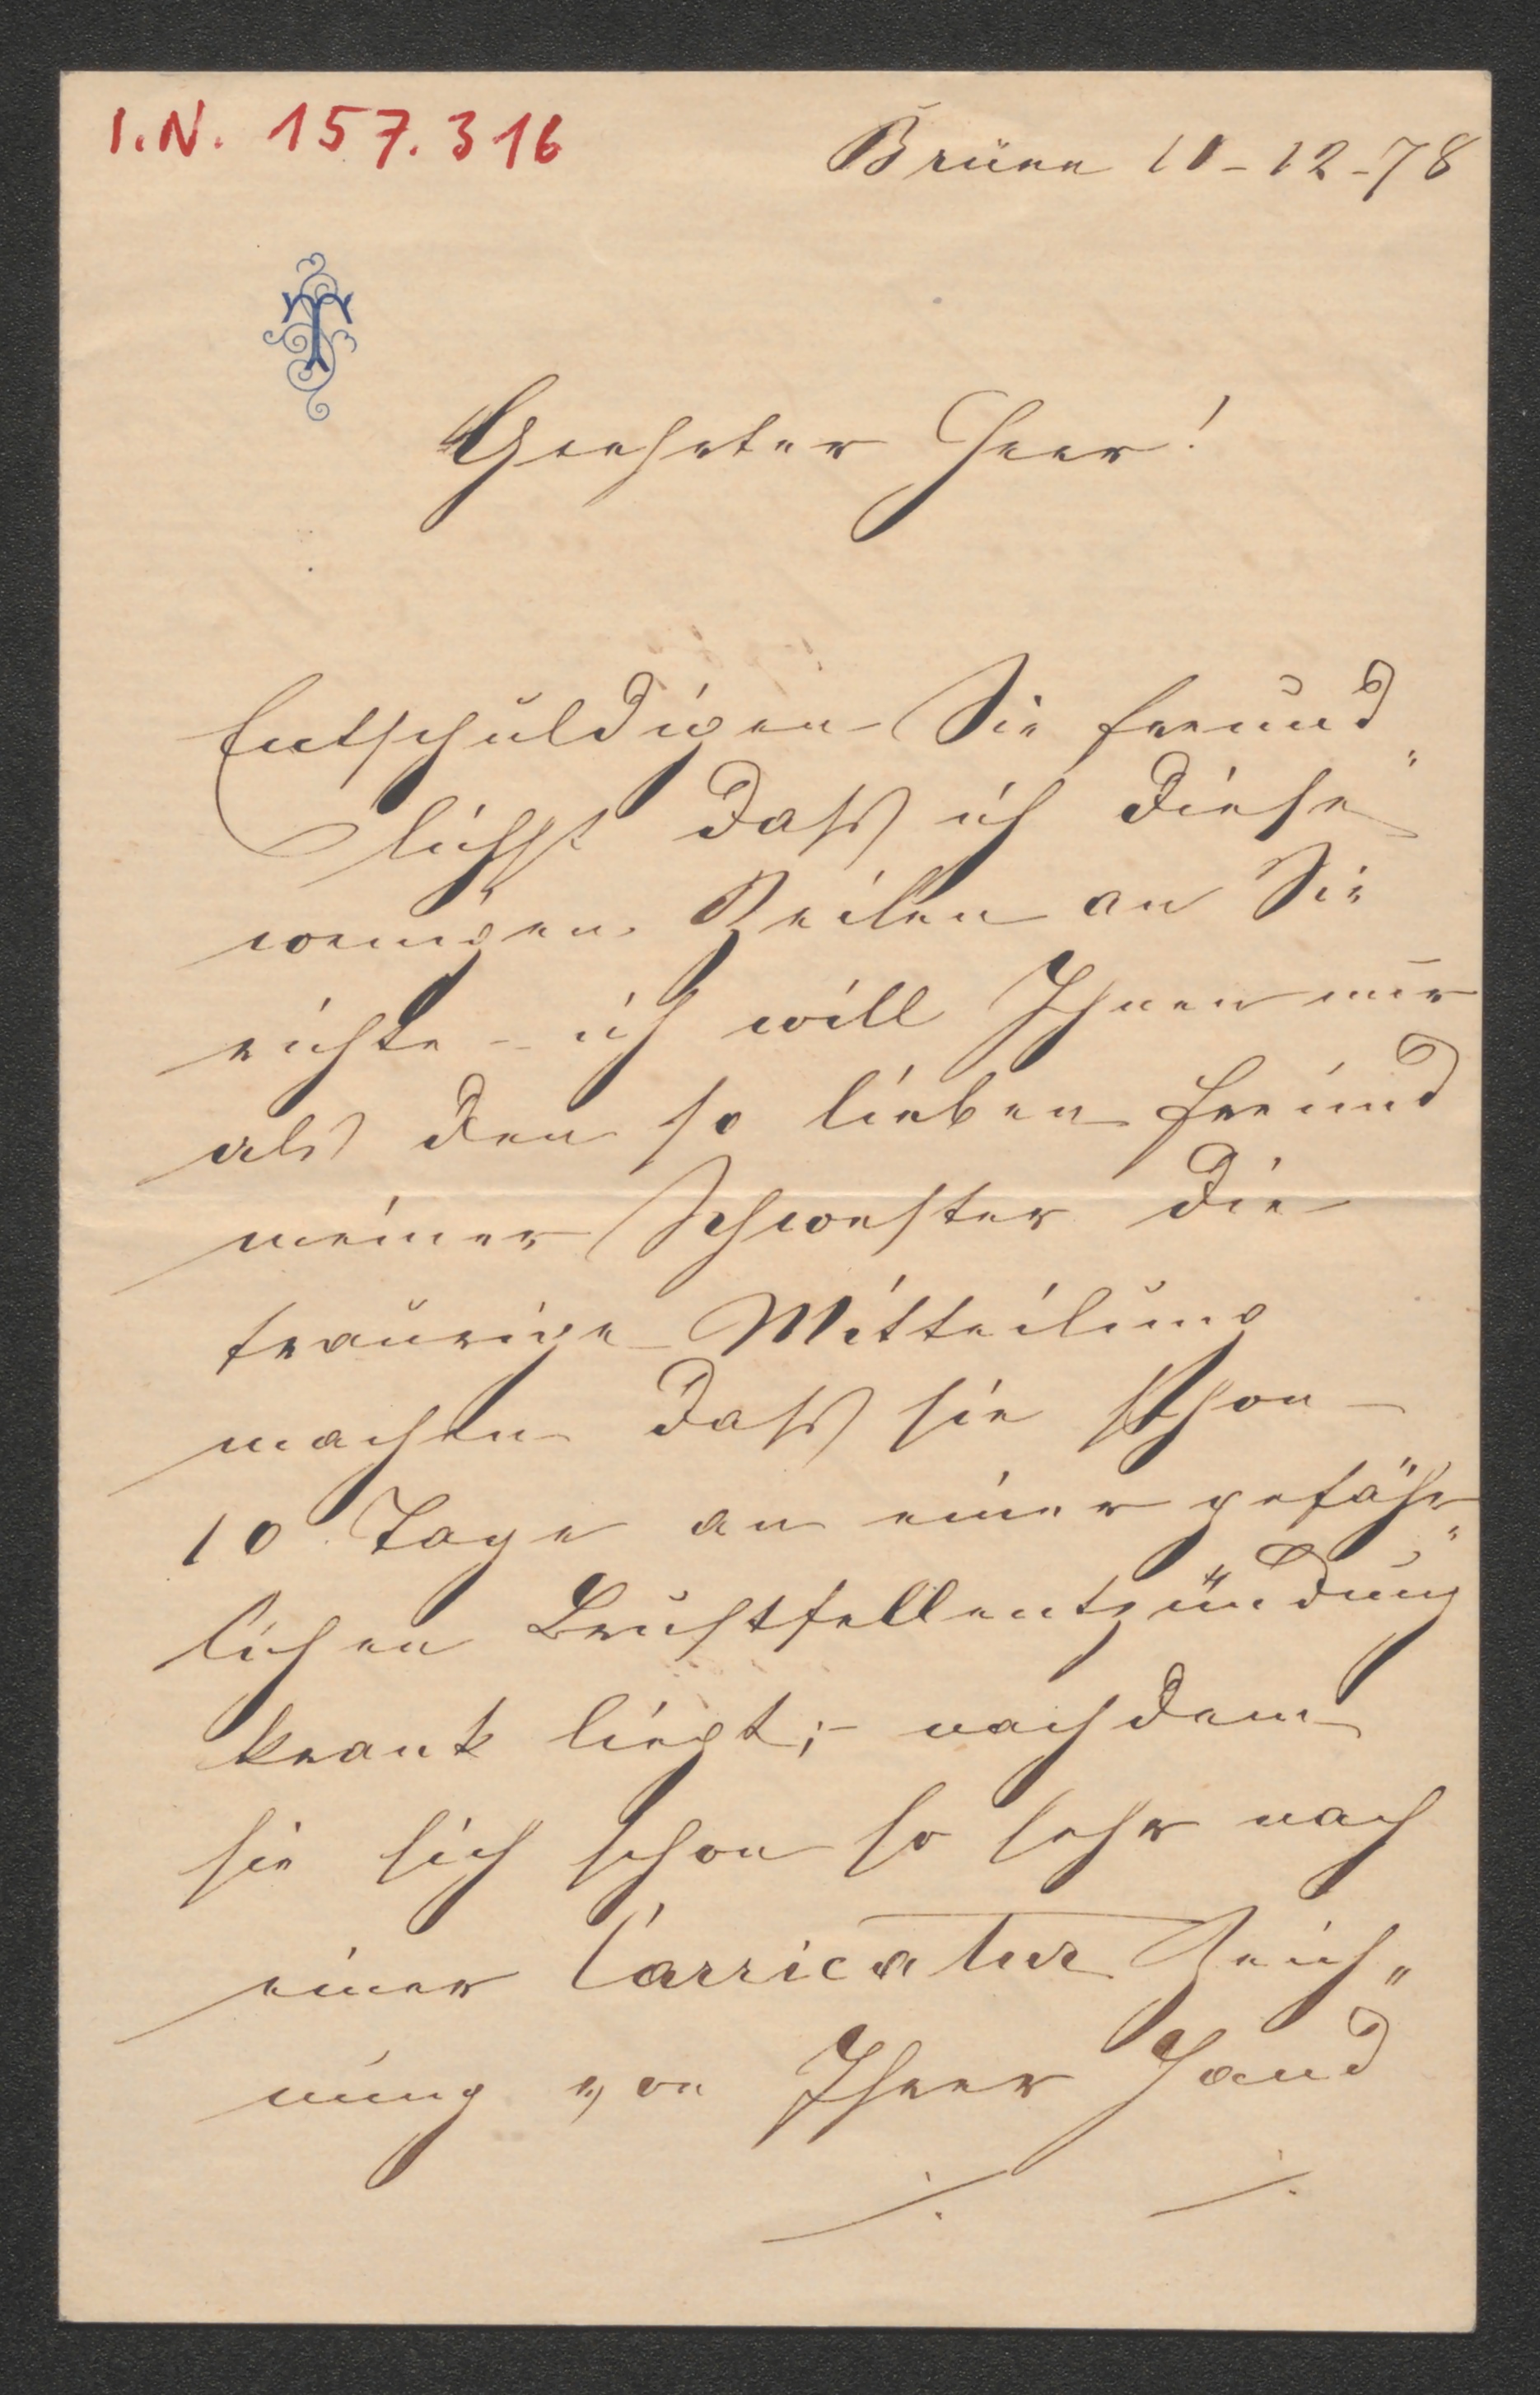 I.N. 157.316
Brünn 10-12-78
T
Geehrter Herr!
Entschuldigen Sie freund„
lichst daß ich diese
wenigen Zeilen an Sie
richte – ich will Ihnen nur
als den so lieben Freund
meiner Schwester die
traurige Mitteilung
machen daß sie schon
10 Tage an einer gefähr„
lichen Brustfellentzündung
krank liegt; – nachdem
sie sich schon so sehr nach
einer Carricatur Zeich„
nung von Ihrer Hand
./. ./.